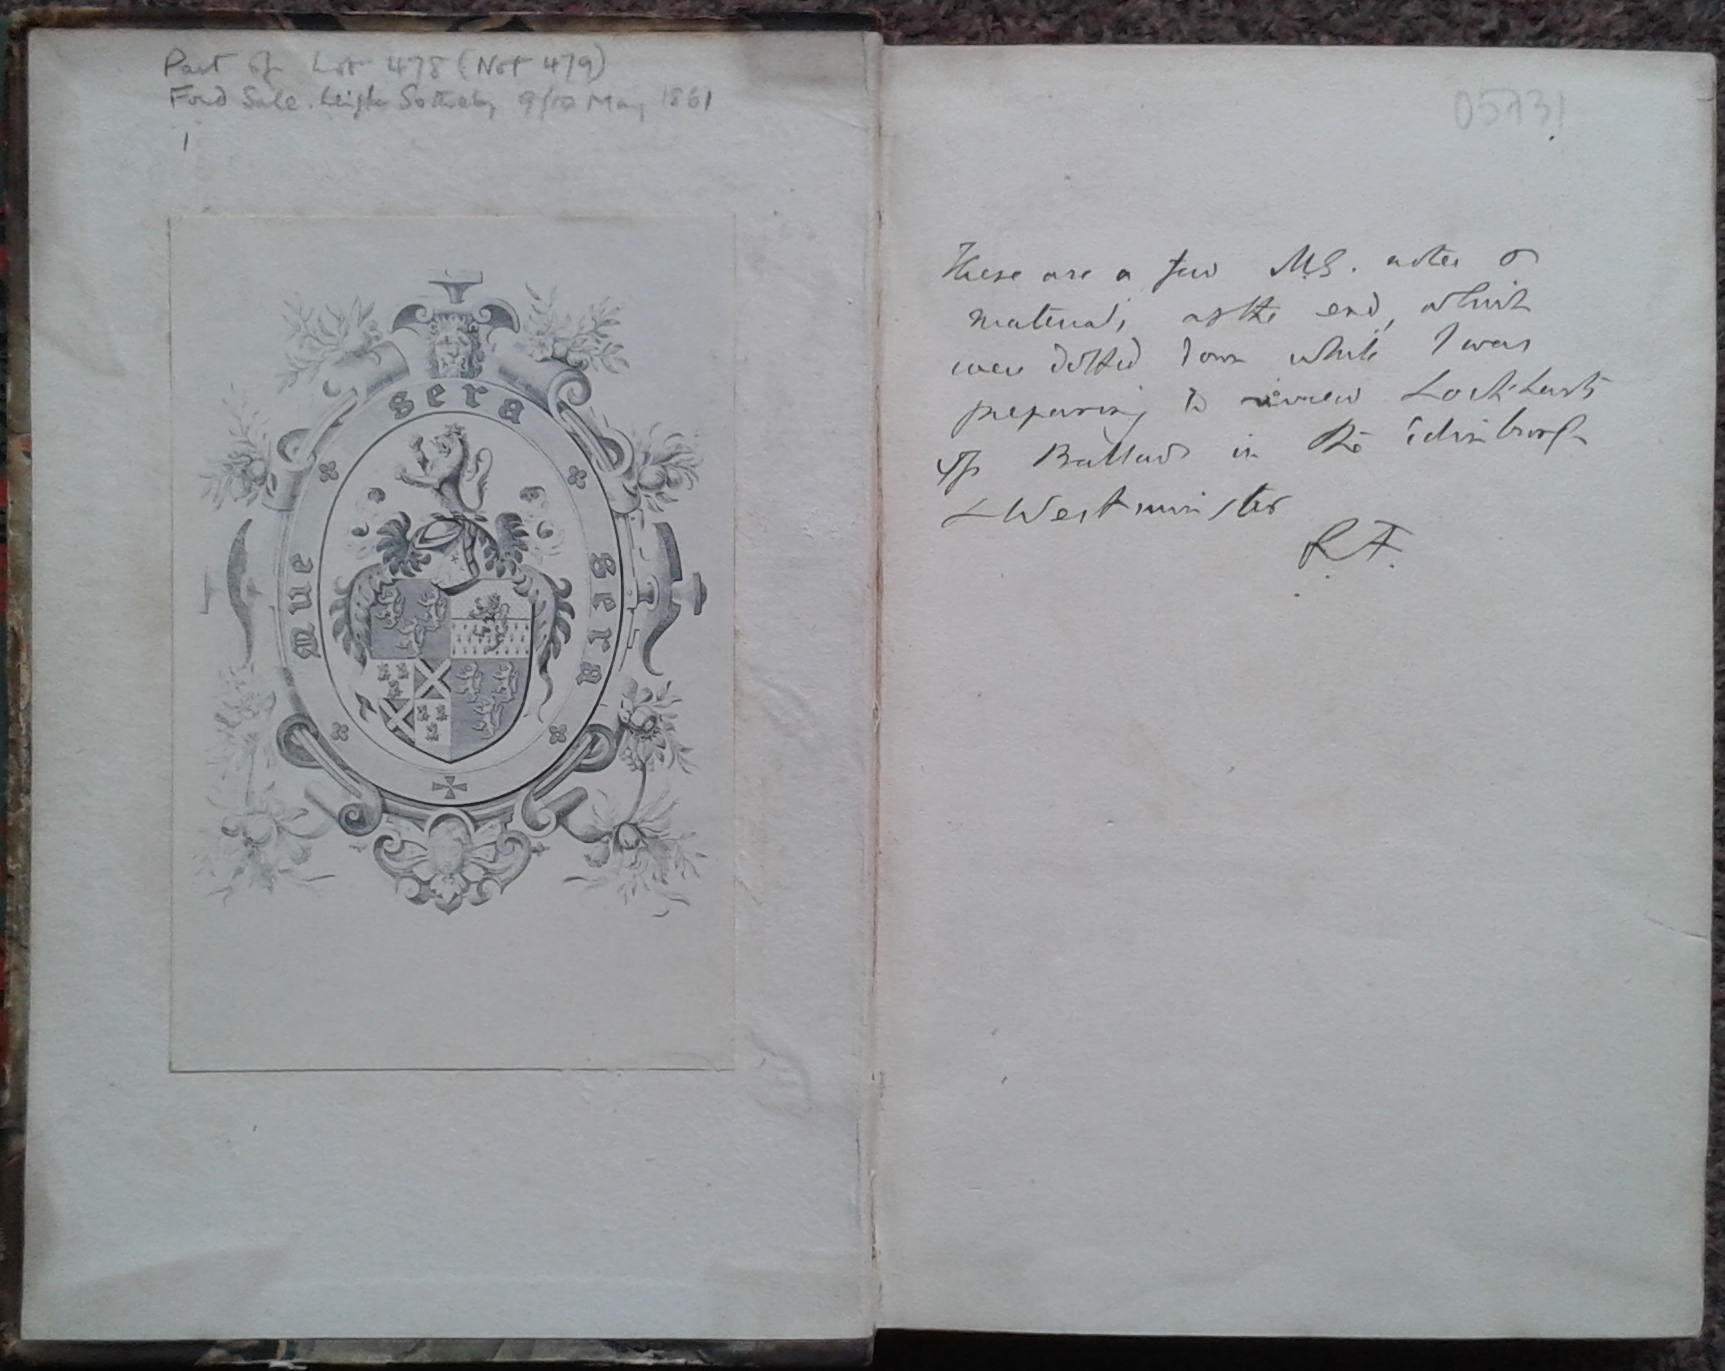 Part of Lot 478 (Not 479)
Ford Sale. Leigh Sotheby 9/10 May 1861
1
Que sera Sera
05731
These are a few MS. notes &
materials at the end, which
were dotted down while I was
preparing to review Lockharts
Sp Ballads in the Edinburgh
& Westminster
R.F.